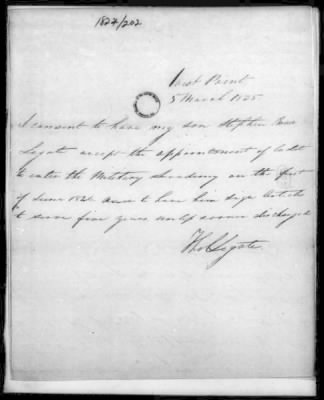 1824/202
West Point
5 March 1825
I consent to have my son Stephen
Legate accept the appointment of Cadet
to enter the Military Academy on the first
of June 182 and to have him sign articles
to serve five years unless sooner discharged
Tho Legate